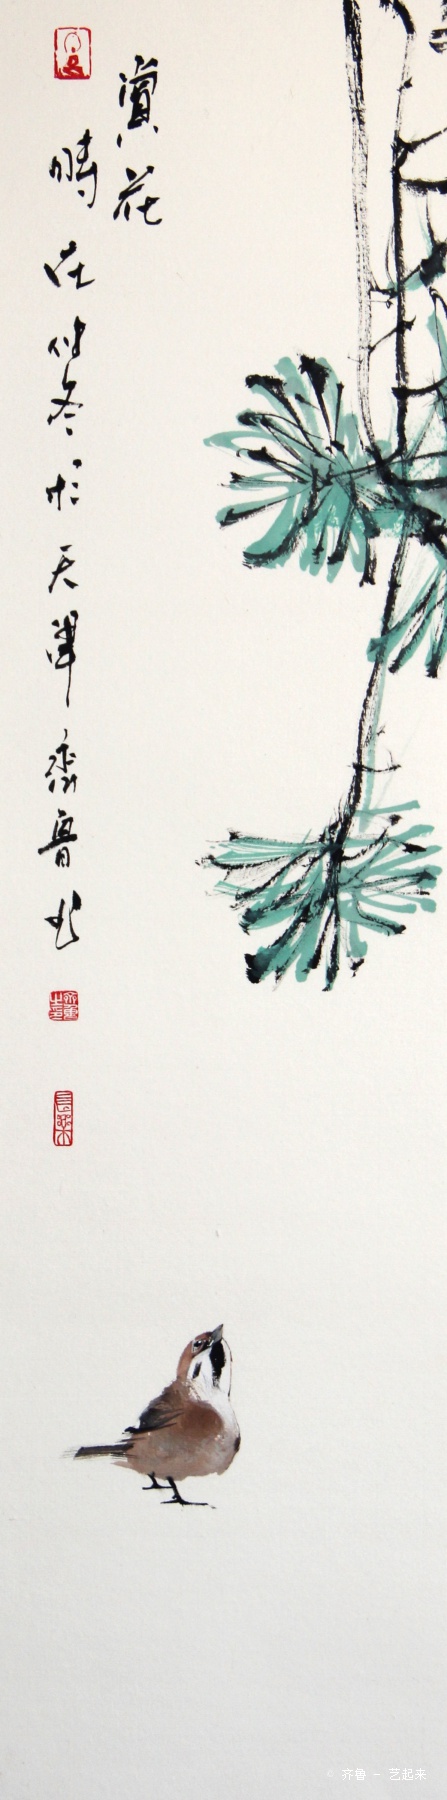 賞花
時在仲冬於天津齊魯作
© 齐鲁 - 艺起来